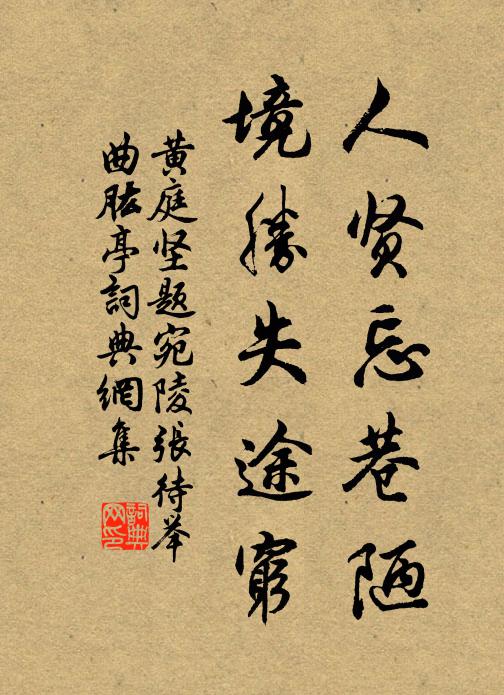 人贤忘巷陋
境勝失途窮
黄庭坚题宛陵張待举
曲肱亭詞典網集
詞典网印